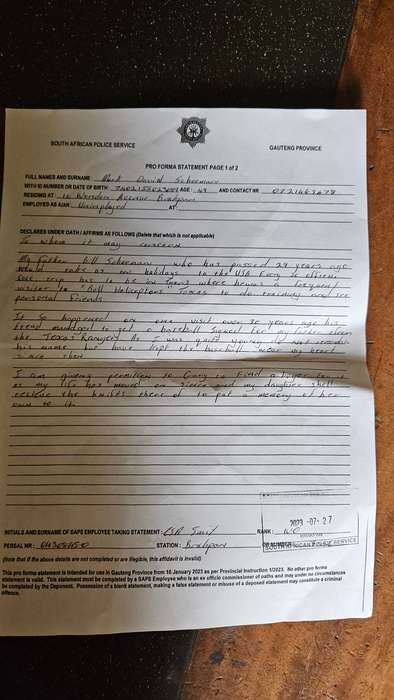 SOUTH AFRICAN POLICE SERVICE
GAUTENG PROVINCE
PRO FORMA STATEMENT PAGE 1 of 2
FULL NAMES AND SURNAME : Mark David
WITH ID NUMBER OR DATE OF BIRTH: AGE : 49 AND CONTACT NR
RESIDING AT : Avenue Brakpan
EMPLOYED AS A/AN : Unemployed AT
DECLARES UNDER OATH / AFFIRMS AS FOLLOWS (Delete that which is not applicable)
To whom it may concern
My Father Bill who has passed 29 years ago
would take us on holidays to the USA
trip has to be in Texas where he was a frequent
visitor to Bell Helicopters Texas to do training and see
personal friends
It so happened on one visit over 30 years ago his
friend managed to get a baseball signed for my father from
the Texas Rangers As I was quite young do not remember
his name but have kept the baseball near my heart
since then
I am giving permission to Gary to find a buyer for it
as my life has moved on since and my daughter shall
receive the thereof to put a memory of her
own to it.
2023 -07- 27
INITIALS AND SURNAME OF SAPS EMPLOYEE TAKING STATEMENT : Smit RANK : W/O
PERSAL NR : STATION : Brakpan
SOUTH AFRICAN POLICE SERVICE
(Note that if the above details are not completed or are illegible, this affidavit is invalid)
This pro forma statement is intended for use in Gauteng Province from 16 January 2023 as per Provincial Instruction 1/2023. No other pro forma
statement is valid. This statement must be completed by a SAPS Employee who is an ex officio commissioner of oaths and may under no circumstances
be completed by the Deponent. Possession of a blank statement, making a false statement or misuse of a deposed statement may constitute a criminal
offence.